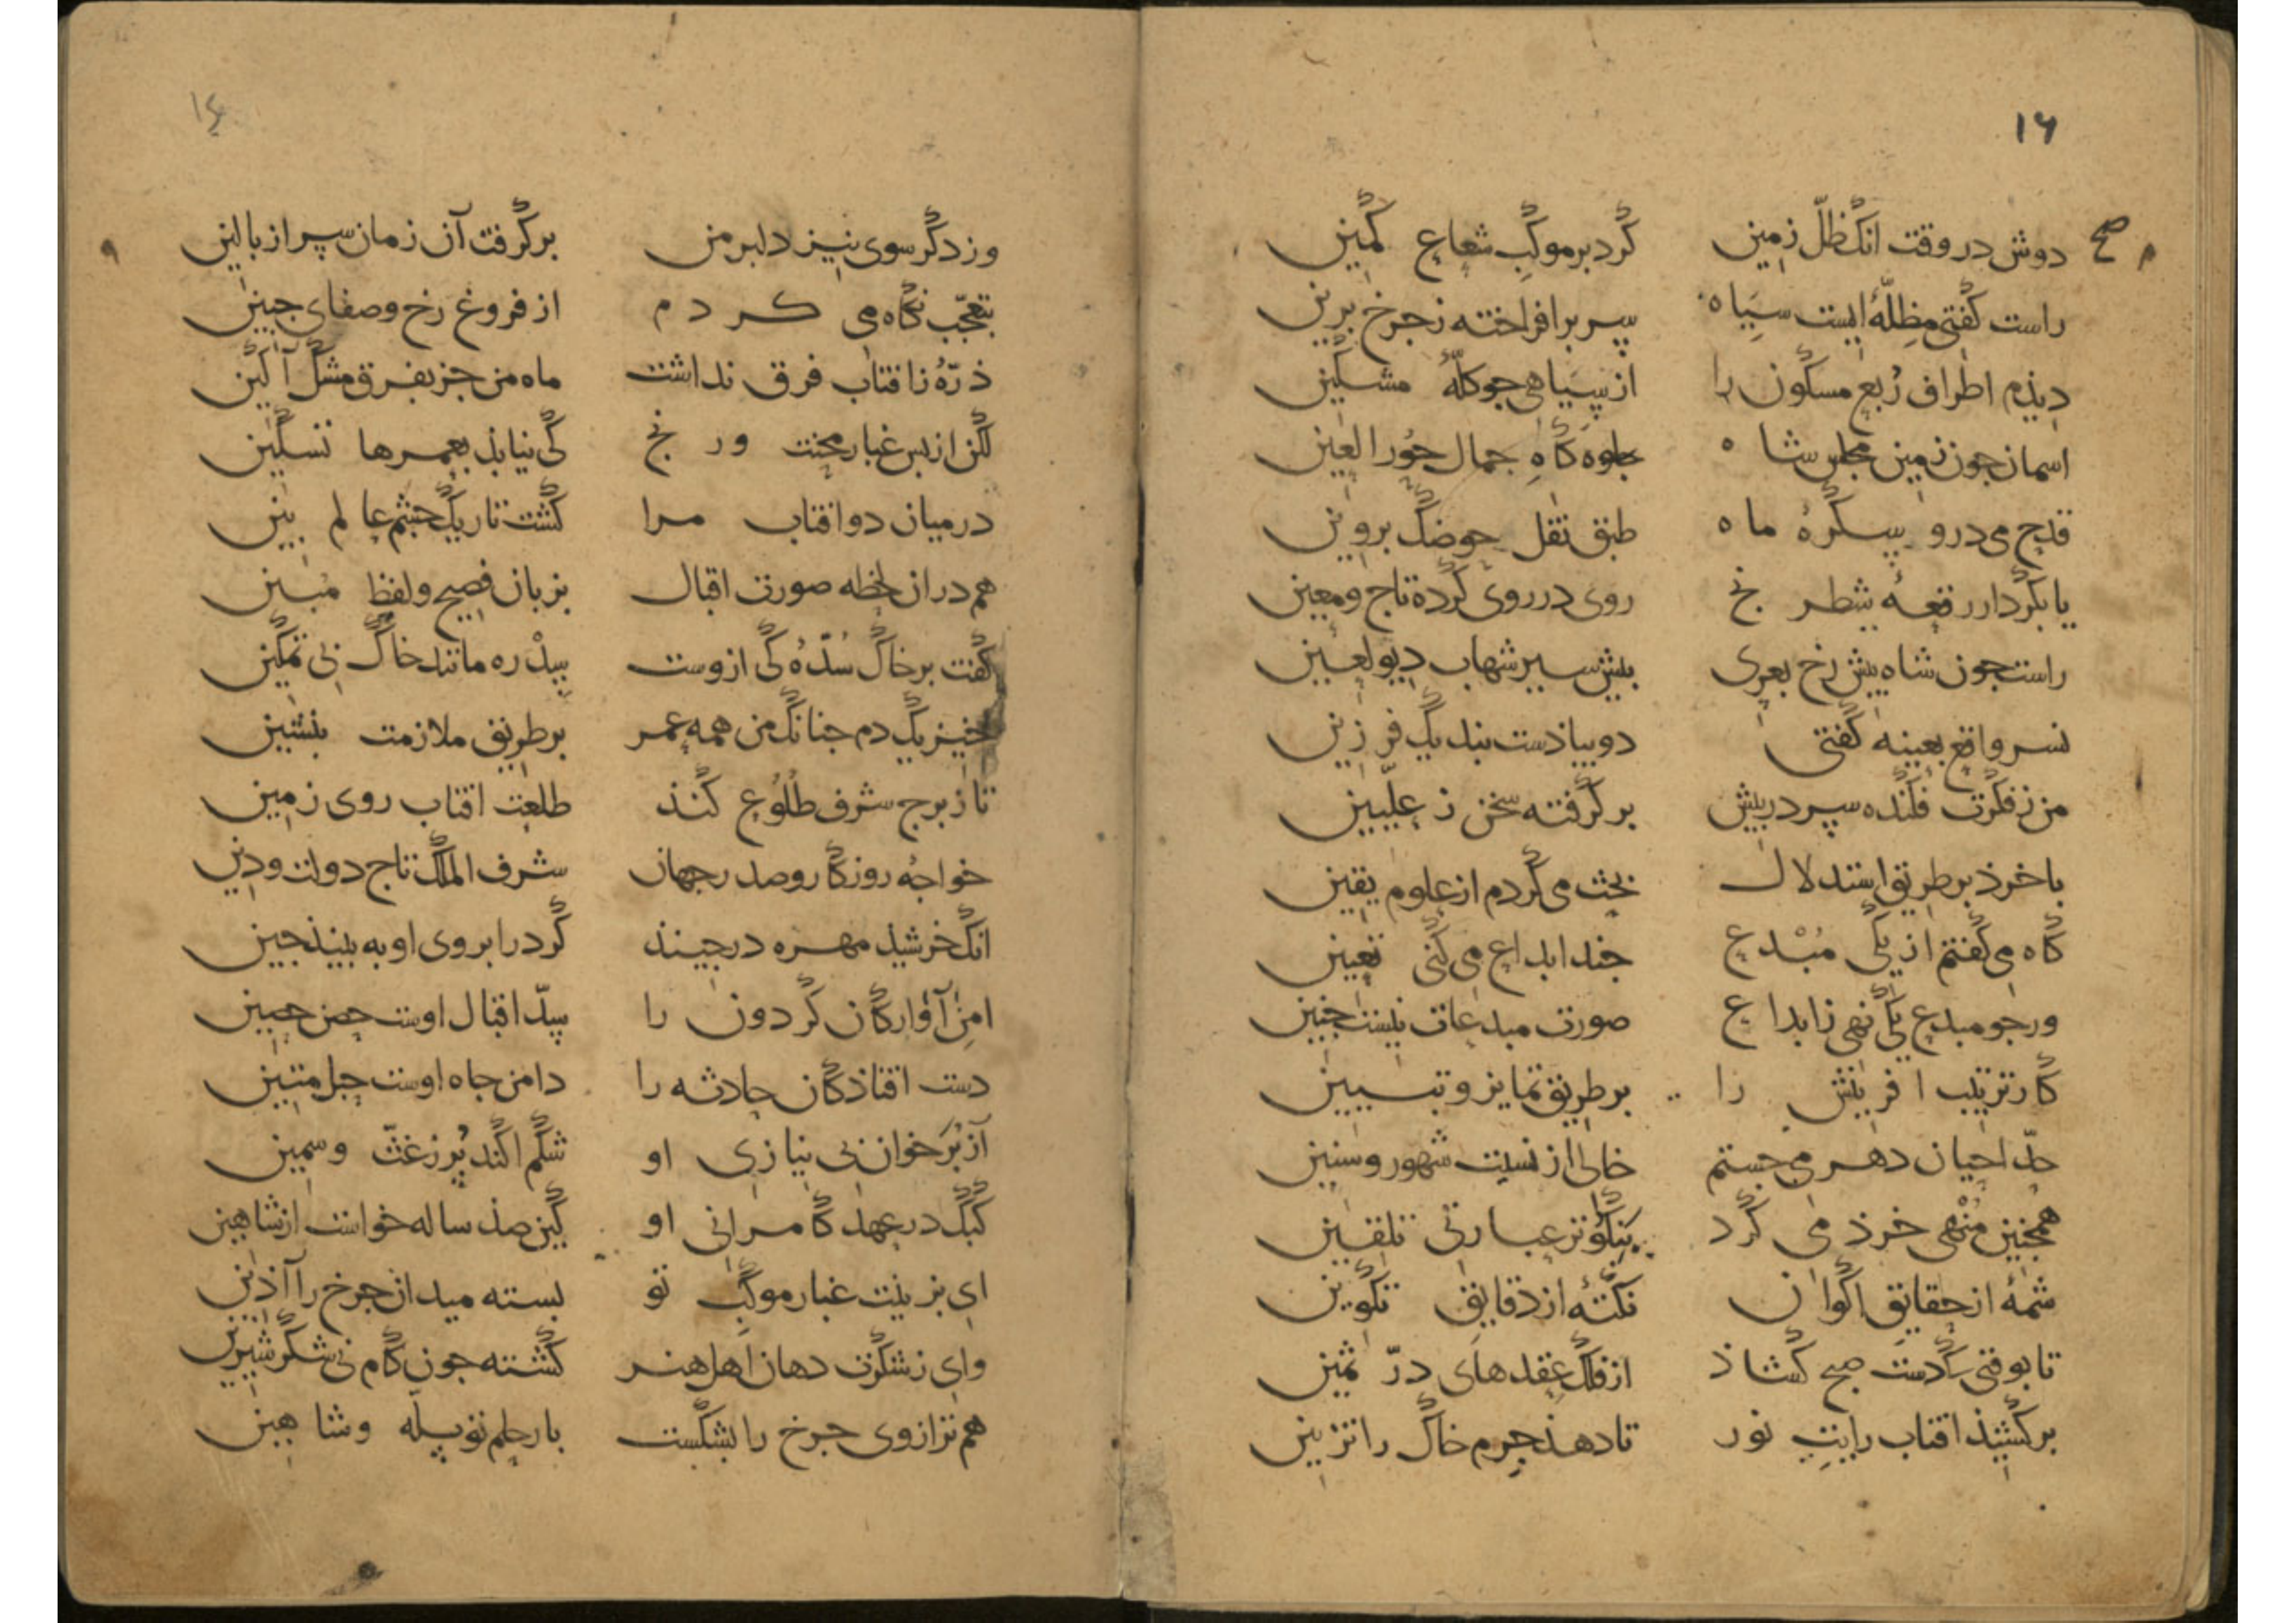 ۱۶
صح
دوش در وقت انک ظلّ زمین کرد بر موکب شعاع کمین
راست کفتی مظلّهٔ ایست سیاه سر بر افراخته ز جرخ برین
دیذم اطراف ربع مسکون را از سیاهی جو کلّهٔ مشکین
اسمان جون زمین مجلس شاه جلوه کاه جمال حور العین
قدح می درو بیکرهٔ ماه طبق نقل حوضک بروین
یا بکردار رقعهٔ شطرنج روی در روی کرده تاج ومعین
راست جون شاه بیش رخ بعری بیش سیر شهاب دیو لعین
نسر واقع بعینه کفتی دو بیاذست بند یک فرزین
من ز فکرت فکنده سر در بیش بر کرفته سخن ز علّیین
با خرذ بر طریق استدلال بحث می کردم از علوم یقین
کاه می کفتم از یکی مبدع جند ابداع می کنی تعیین
ور جو مبدع یکی نهی ز ابداع صورت مبدعات نیست جنین
کار ترتیب افرینش را بر طریق تمایز وتبیین
حدّ احیان دهر می جستم خالی از نسبت شهور وسنین
همجنین منهی خرذ می کرد بنکوتر عبارتی تلقین
شمهٔ از حقایق اکوان نکتهٔ از دقایق تکوین
تا بوقتی ک دست صبح کشاذ از فلک عقدهای درّ ثمین
بر کشیذ افتاب رایت نور تا دهذ جرم خاک را تزیین
۱۴
وز دکر سوی نیز دلبر من بر کرفت آن زمان سر از بالین
بتعجّب نکاه می کردم از فروغ رخ وصفای جبین
ذرّهٔ ز افتاب فرق نداشت ماه من جز بفرق مشک آکین
لکن از بس غبار محنت ورنج کی نیابذ بعمرها تسکین
در میان دو افتاب مرا کشت تاریک جشم عالم بین
هم در ان لحظه صورت اقبال بزبان فصیح ولفظ مبین
کفت بر خاک سدّهٔ کی ازوست سدره مانند خاک بی تمکین
خیز یک دم جنانک من همه عمر بر طریق ملازمت بنشین
تا ز برج شرف طلوع کند طلعت افتاب روی زمین
خواجهٔ روزکار وصدر جهان شرف الملک تاج دولت ودین
انک خرشیذ مهره در جیند کر در ابروی او به بیند جین
امن آوارکان کردون را سدّ اقبال اوست حصن حصین
دست افتاذکان حادثه را دامن جاه اوست حبل متین
آز بر خوان بی نیازی او شکم اکند پر ز غثّ وسمین
کبک در عهد کامرانی او کین صذ ساله خواست از شاهین
ای بزینت غبار موکب تو بسته میدان جرخ را آذین
وای ز شکرت دهان اهل هنر کشته جون کام نی شکر شیرین
هم ترازوی جرخ را بشکست بار حلم تو بلّه وشاهین